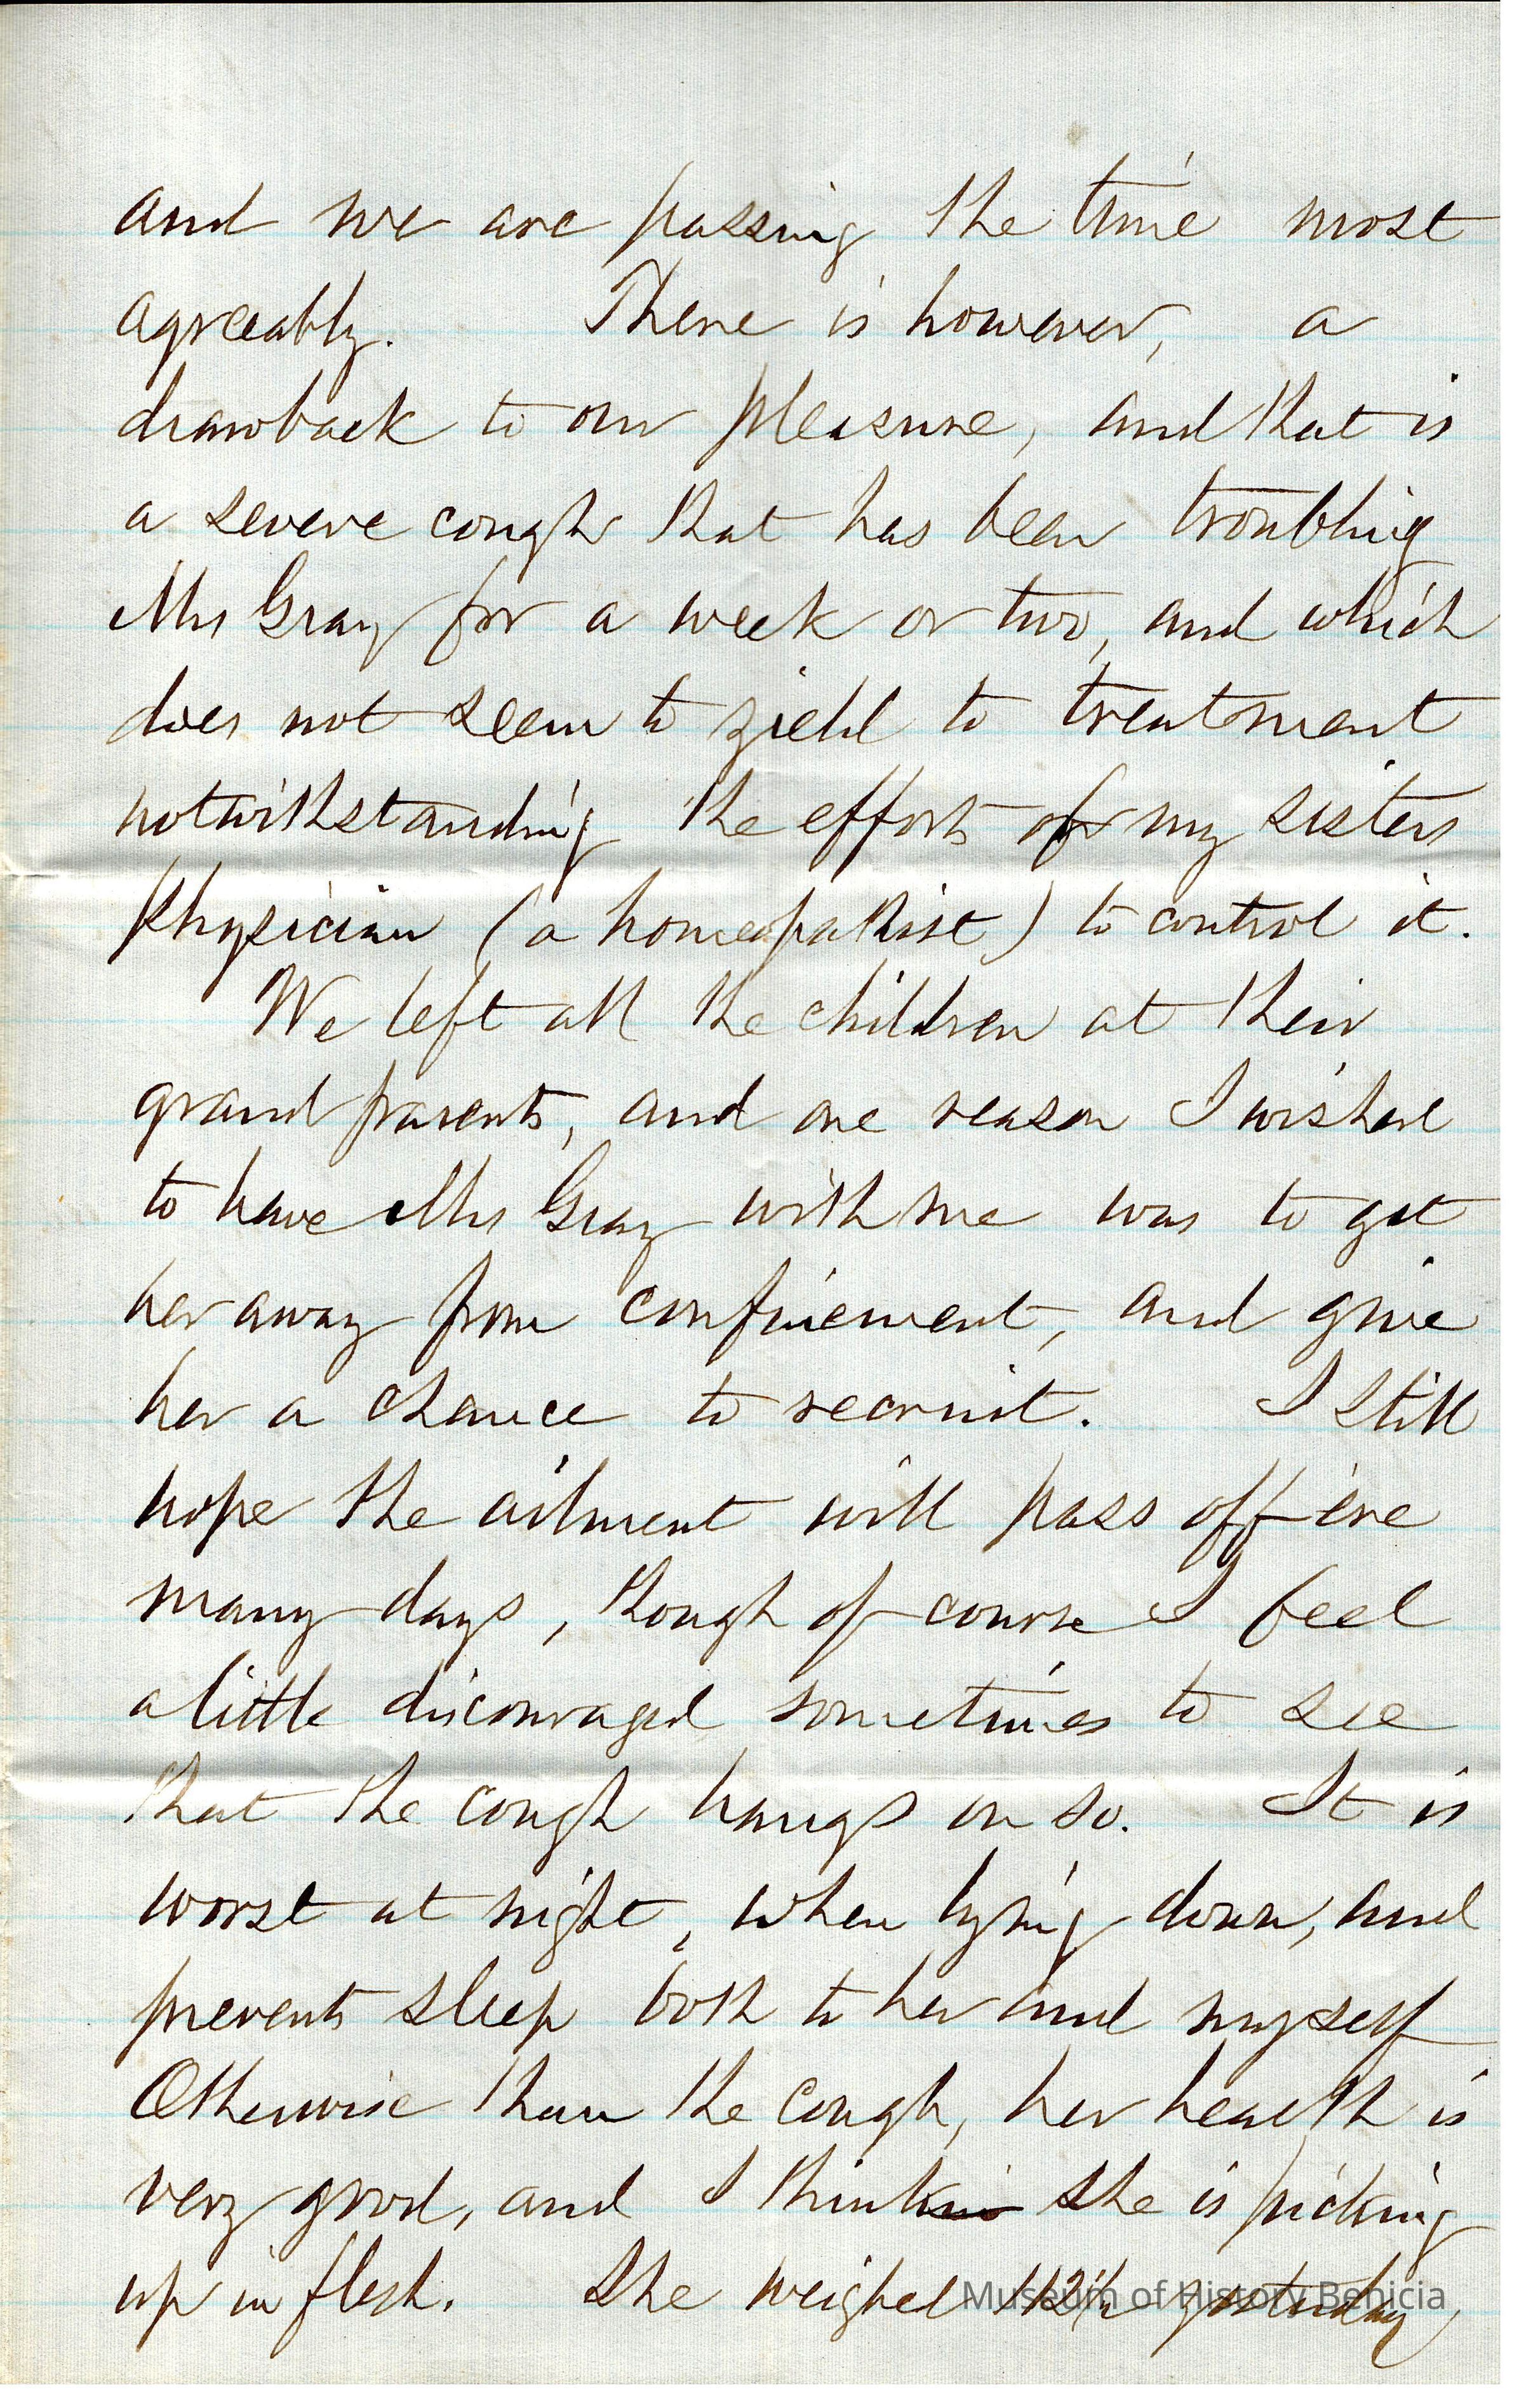 and we are passing the time most
agreeably. There is however, a
drawback to our pleasure, and that is
a severe cough that has been troubling
Mrs Gray for a week or two, and which
does not seem to yield to treatment
notwithstanding the efforts of my sisters
physician (a homeopathist) to control it.
We left all the children at their
grand parents, and one reason I wished
to have Mrs Gray with me was to get
her away from confinement, and give
her a chance to recruit. I still
hope the ailment will pass off ere
many days, though of course I feel
a little discouraged sometimes to see
that the cough hangs on so. It is
worst at night, when lying down, and
prevents sleep both to her and myself
Otherwise than the cough, her health is
very good, and I think she is picking
up in flesh. She weighed 112½ yesterday,
Museum of History Benicia